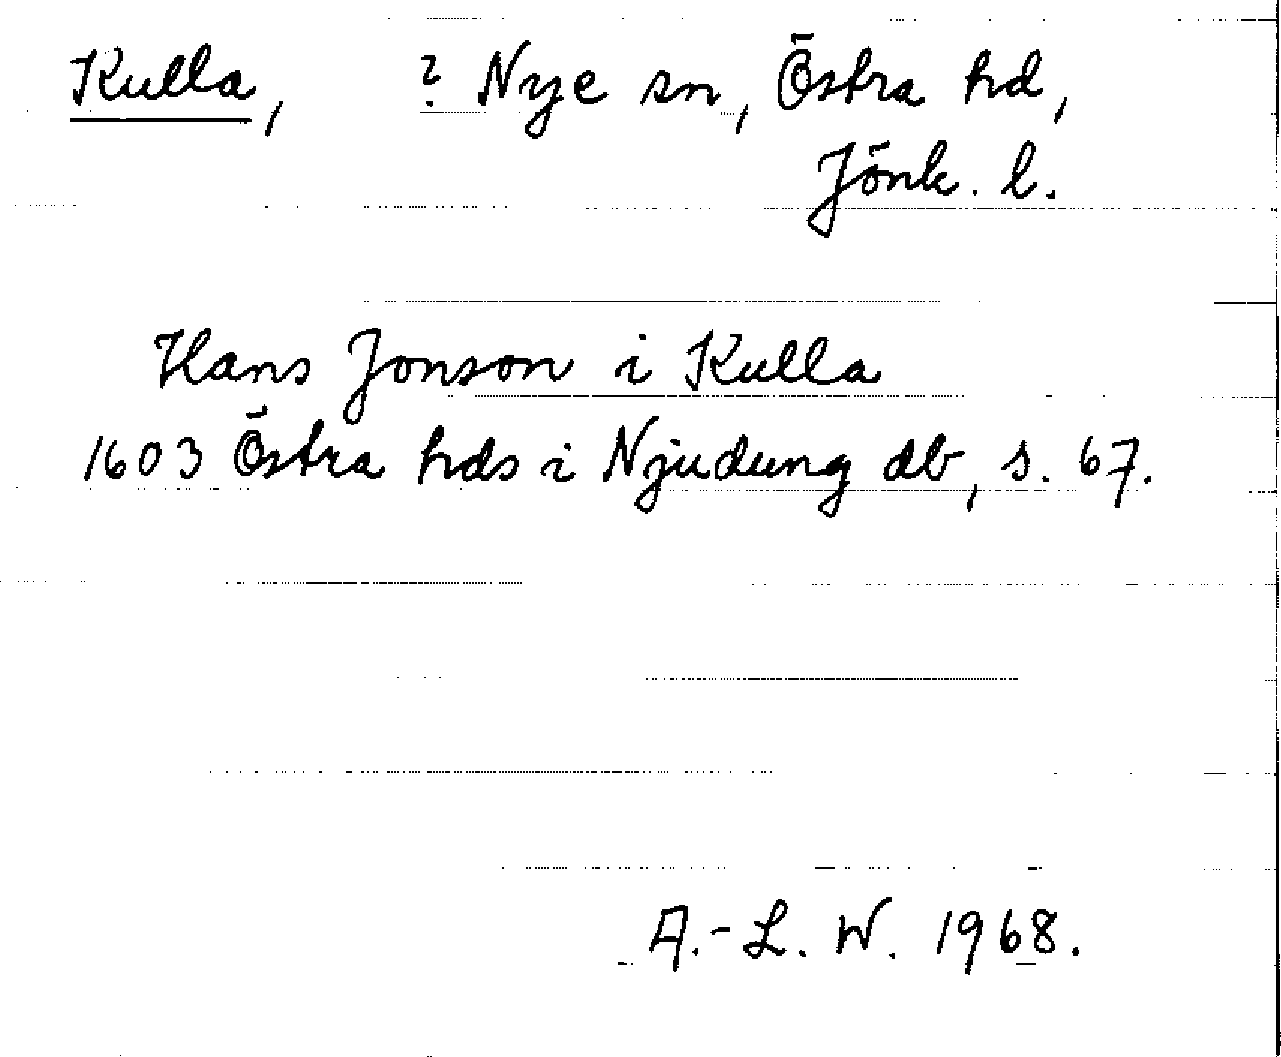 Kulla, ? Nye sn, Östra hd,
Jönk. l.
Hans Jonson i Kulla
1603 Östra hds i Njudung db, s. 67.
A.-L. W. 1968.